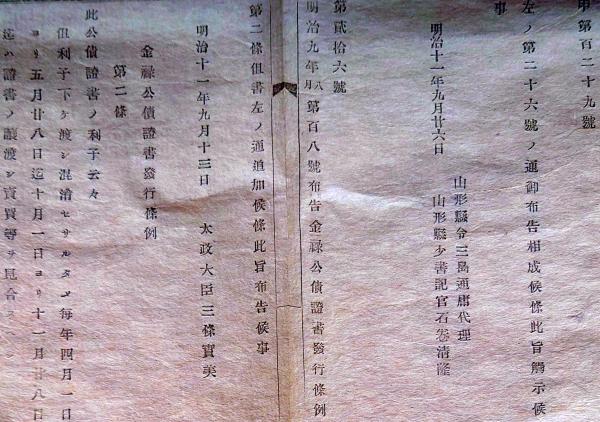 甲第百二十九號
左ノ第二十六號ノ通御布告相成候條此旨觸示候
事
明治十一年九月廿六日
山形縣令三島通庸代理
山形縣少書記官石卷清隆
第貳拾六號
明治九年八月第百八號布告金祿公債證書發行條例
第二條但書左ノ通追加候條此旨布告候事
明治十一年九月十三日
太政大臣三條實美
金祿公債證書發行條例
第二條
此公債證書ノ利子云々
但利子下ケ渡シ混淆セサルタメ每年四月一日
ヨリ五月廿八日迄十月一日ヨリ十一月廿八日
迄ハ證書ノ讓渡シ賣買等ヲ見合